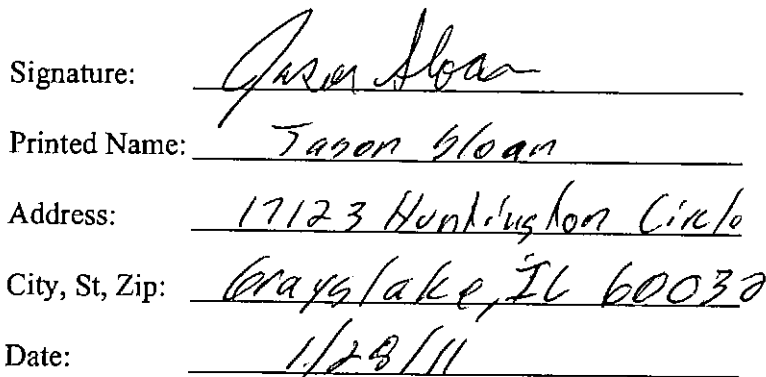 Signature: Jason Sloan
Printed Name: Jason Sloan
Address: 17123 Huntington Circle
City, St, Zip: Grayslake, IL 60030
Date: 1/28/11